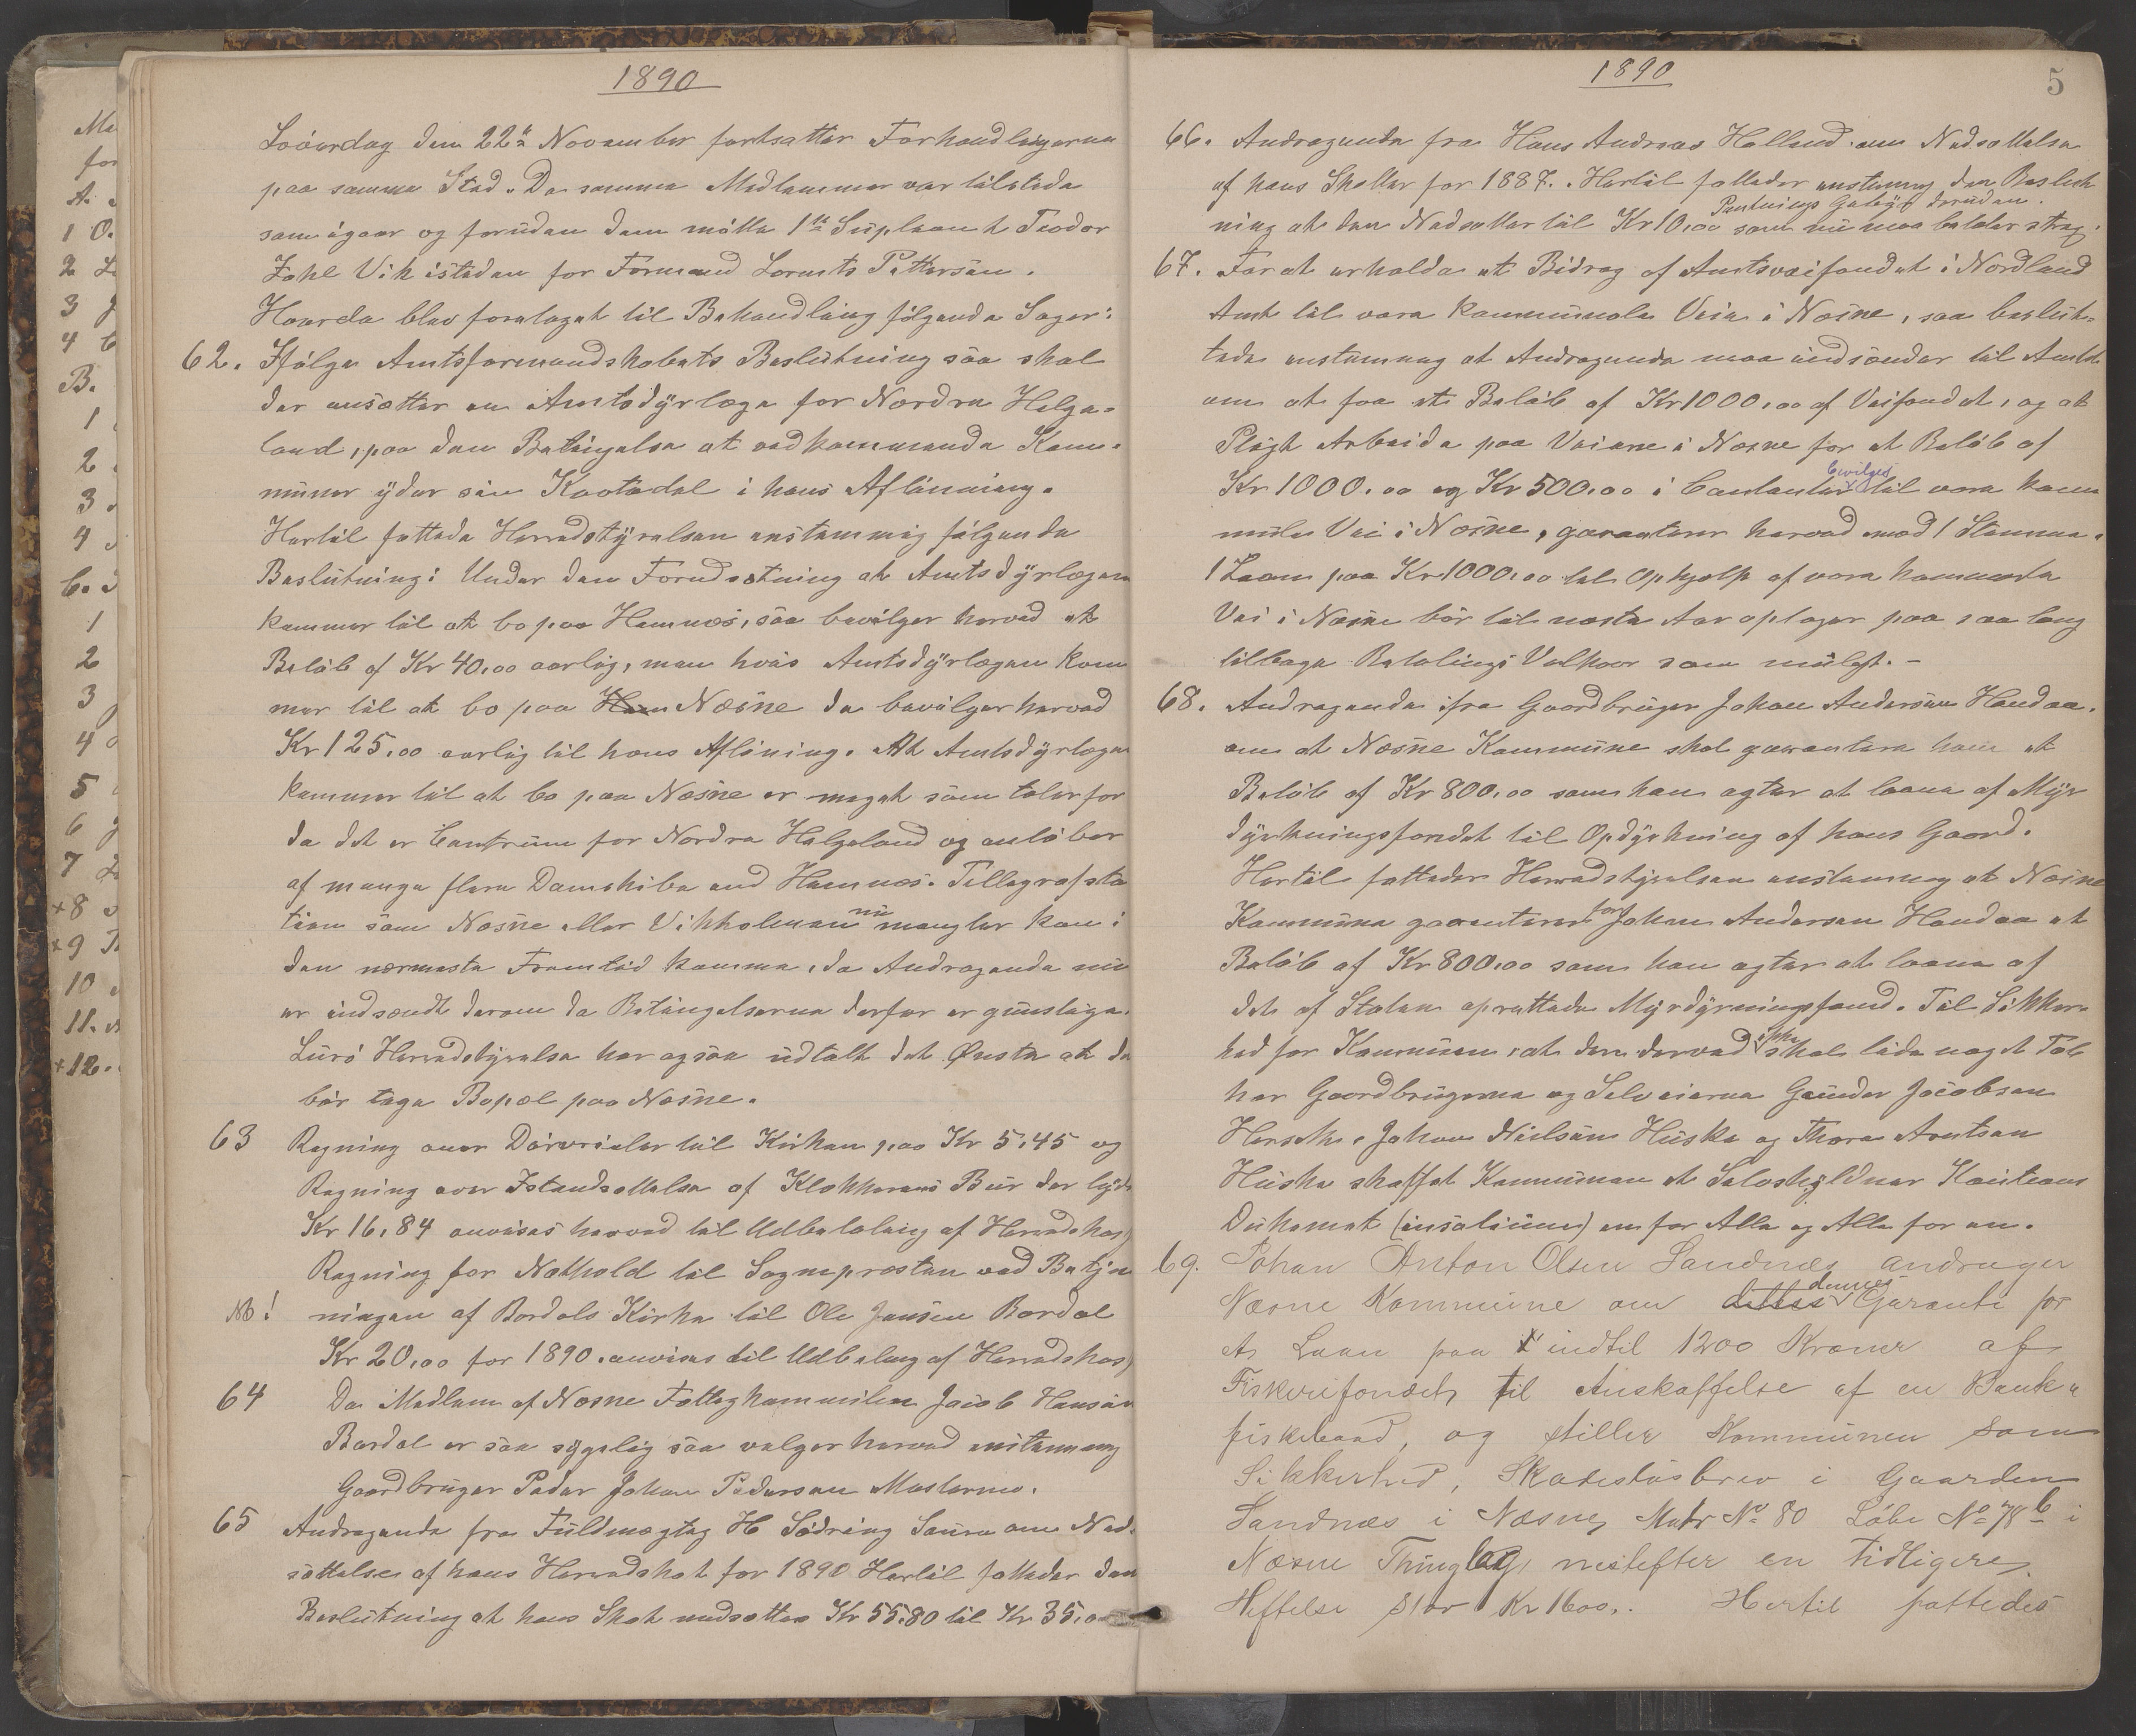 1890
Loverdag den 22de November fortsattes Forhandlingerne
paa samme Sted. De samme Medlemmer var tilstede
som igaar og foruden dem mötte 1te Supleant Teodor
Zahl Vik isteden for Formand Lornts Pettersen.
Hvorda blev foretaget til Behandling fölgende Sager:
62. Ifölge Amtsformandskabets Beslutning saa skal
der ansættes en Amtsdyrlæge for Nordre Helge=
land, paa den Betingelse at vedkommende Kom=
muner yder sin Kvotadel i hans Aflönning.
Hertil fattede Herredstyrelsen enstemmig fölgende
Beslutning: Under den Forudsetning at Amtsdyrlægen
kommer til at bo paa Hemnes, saa bevilges herved et
Belöb af Kr 40,00 aarlig, men hvis Amtsdyrlægen kom
mer til at bo paa Hem Næsne da bevilges herved
Kr 125,00 aarlig til hans Aflöning. At Amtsdyrlægen
kommer til at bo paa Næsne er meget som taler for
da det er Centrum for Nordre Helgeland og anlöbes
af mange flere Damskibe end Hemnes. Tellegrafsta
tion som Næsne eller Vikholmen nu mangler kan i
den nærmeste Fremtid komme, da Andragende nu
er indsendt derom da Betingelserne derfor er gunstige.
Lurö Herredstyrelse har ogsaa udtalt det Ønske at de
bör tage Bopæl paa Næsne.
63 Regning over Dörvrieler til Kirken paa Kr 5,45 og
Regning over Istandsettelse af Klokkerens Bur der lyder
Kr 16,84 anvises herved til Udbetaling af Herredskas)
Regning for Nathold til Sognepresten ved Betje
NB! ningen af Bardals Kirke til Ole Jensen Bardal
Kr 20,00 for 1890 anvises til Udbetaling af Herredskas)
64 Da Medlem af Næsne Fattigkommision Jacob Hansen
Bardal er saa sygelig saa velges herved enstemmig
Gaardbruger Peder Johan Pedersen Mastermo.
65 Andragende fra Fuldmægtig H Södring Saura om Ned=
settelse af hans Herredskat for 1890 Hertil fattedes den
Beslutning at hans Skat nedsettes Kr 55,80 til Kr 35,00
1890
5
66. Andragende fra Hans Andreas Helland om Nedsettelse
af hans Skatter for 1887. Hertil fattedes enstemmig den Beslut
Pantnings Gebyr desuden.
ning at den Nedsettes til Kr 10,00 som nu maa betales strax.
67. For at erholde et Bidrag af Amtsveifondet i Nordland
Amt til vore kommunale Veie i Næsne, saa beslut=
tedes enstemmig at Andragende maa indsendes til Amtet
om at faa et Belöb af Kr 1000,00 af Veifondet, og at
Pligt Arbeide paa Veiene i Næsne for et Belöb af
Kr 1000.00 og Kr 500.00 i Contanter bevilges til vore kom
munale Vei i Næsne, garanteres herved med 1 Stemme.
1 Laan paa Kr 1000,00 til Ophjælp af vore kommunale
Vei i Næsne bör til næste Aar optages paa saa lang
tilbage Betalings Velkaar som muligt. –
68. Andragende ifra Gaardbruger Johan Andersen Handaa.
om at Næsne Kommune skal garantere ham et
Belöb af Kr 800,00 som han agter at laane af Myr
dyrkningsfondet til Opdyrkning af hans Gaard.
Hertil fattedes Herredstyrelsen enstemmig at Næsne
Kommune garanterer for Johan Andersen Handaa et
Belöb af Kr 800,00 som han agter at laane af
det af Staten oprettede Myrdyrningsfond. Til Sikker
hed for Kommunen at den derved ikke skal lide noget Tab
har Gaardbrugerne og Selveierne Gunder Jacobsen
Johan Nielsen Huske og Thore Arntsen
Huske skaffet Kommunen et Selvskyldner Kautions
Dokument (insolidum) en for Alle og Alle for en.
69. Johan Anton Olsen Sandnæs andrager
Næsne Kommune om dettes dennes Garanti for
et Laan paa indtil 1200 Kroner af
Fiskerifondet til Anskaffelse af en Bank=
fiskebaad, og stiller Kommunen som
Sikkerhed, Skadeslösbrev i Gaarden
Sandnæs i Næsne, Matr No 80 Löbe No 78b i
Næsne Thinglag, nestefter en tidligere
Heftelse stor Kr 1600,. Hertil fattedes
Ma
for
A.
1 O.
2 L
3
4
B.
1
2
3
4
C.
1
2
3
4
5
6
7
+8
+9
10
11.
+12.